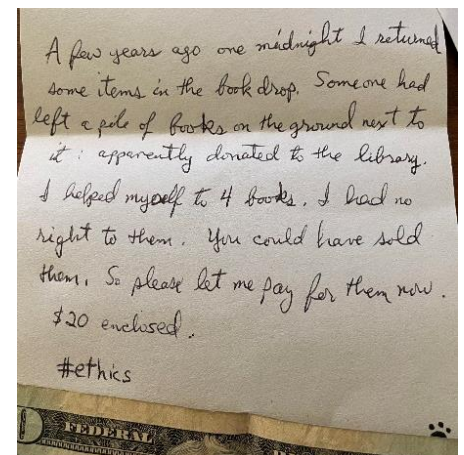 A few years ago one midnight I returned
some items in the book drop. Someone had
left a pile of books on the ground next to
it : apparently donated to the library.
I helped myself to 4 books. I had no
right to them. You could have sold
them. So please let me pay for them now.
$20 enclosed.
#ethics
FEDERAL